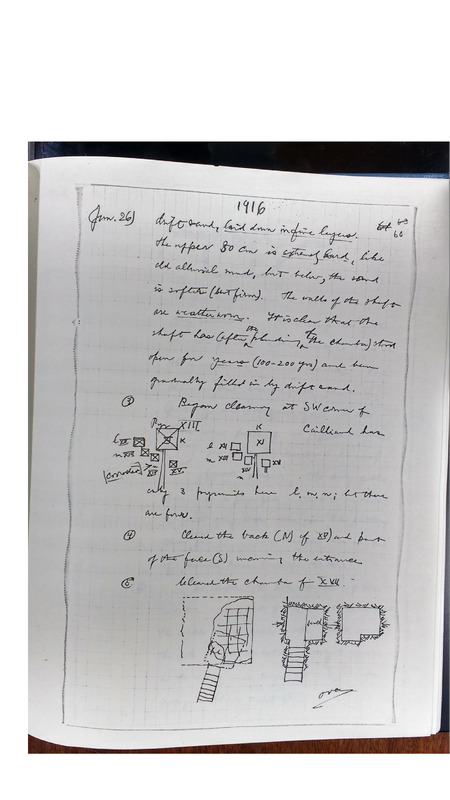 1916
(Jan. 26) drift sand, laid down in fine layers.
The upper 80 cm is hard, like
old alluvial mud, but below, the sand
is softer (but firm). The walls of the shaft
are weatherworn. It is clear that the
shaft has (after the plundering of the chamber) stood
open for years (100-200 yrs) and been
gradually filled in by drift sand.
③ Began clearing at SW corner of
Pyr. XIII Cailliaud has
K
K
XI
l XII
m XIII
XIV
XV
corrected
l XII
m XIII
XIV
XV
n
only 3 pyramids here l, m, n; but there
are four.
④ Cleared the back (N) of XV and part
of the face (S) the entrance
Cleared the chamber of XVII
over